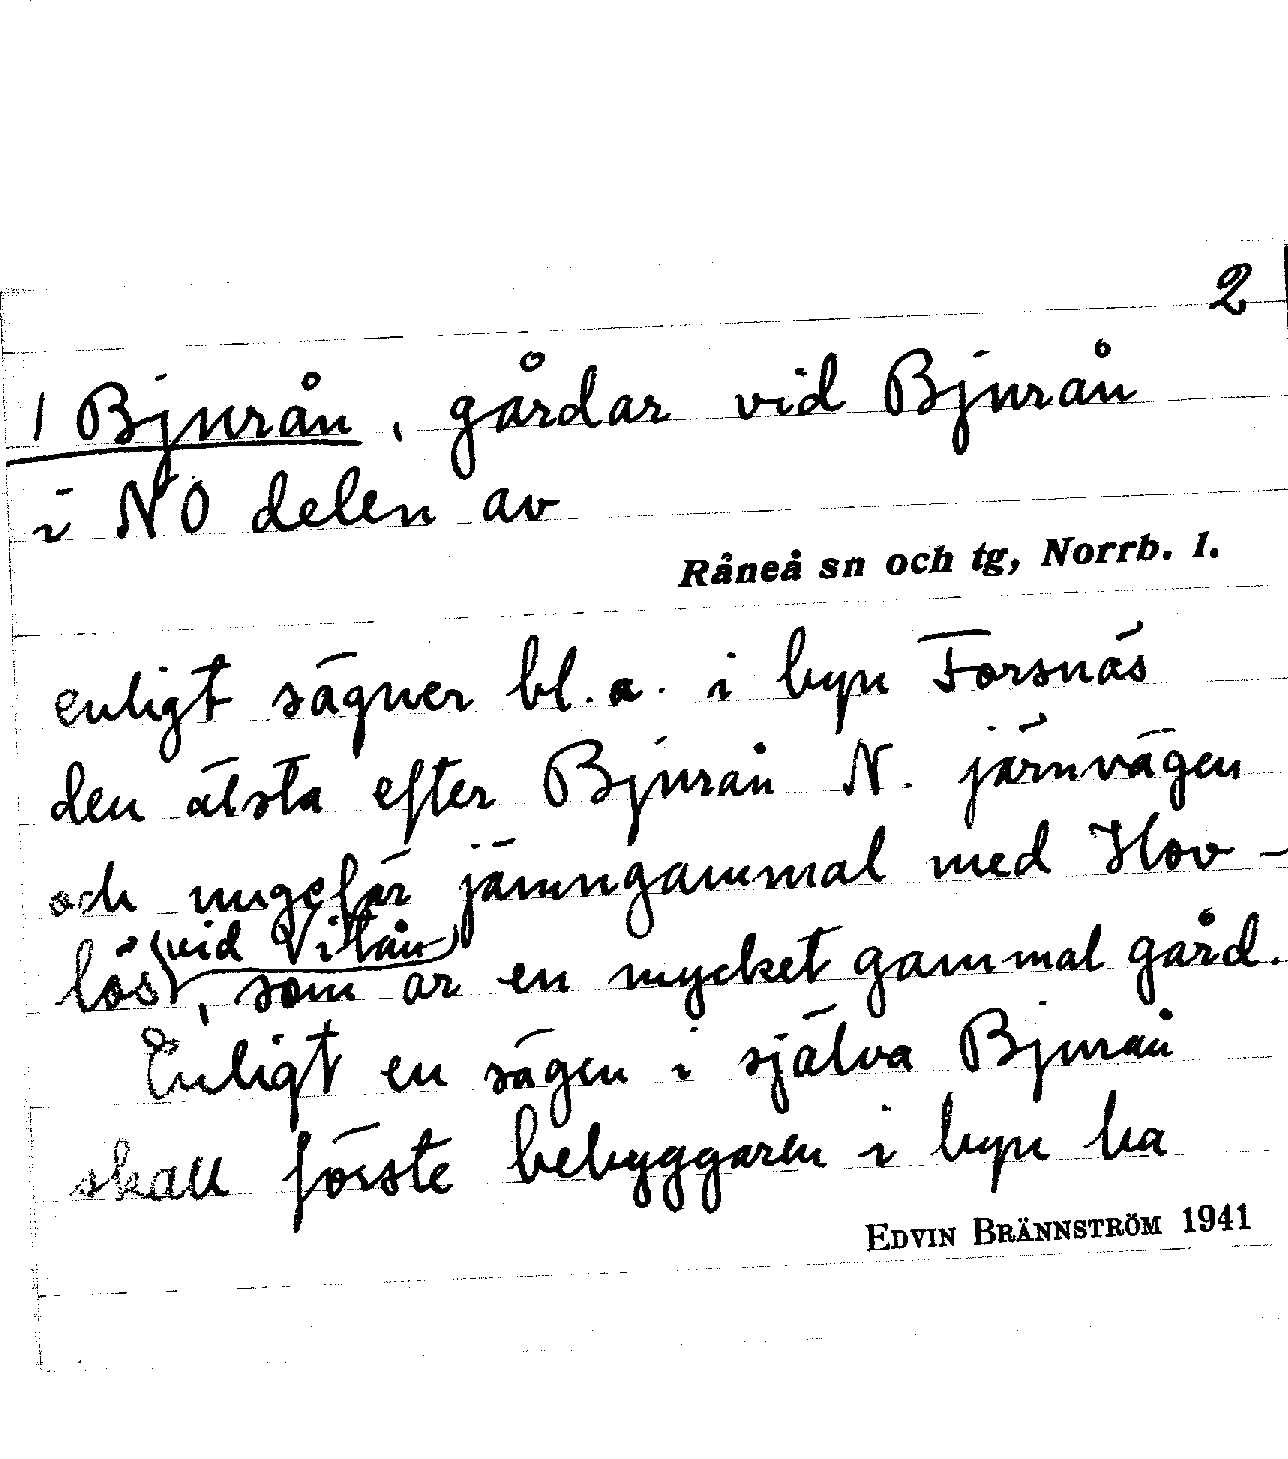 2
1 Bjurån, gårdar vid Bjurån
i NO delen av
Råneå sn och tg, Norrb. l.
enligt sägner bl. a. i byn Forsnäs
den älsta efter Bjurån N. järnvägen
och ungefär jämngammal med Hov-
lös (vid Vitån), som är en mycket gammal gård.
Enligt en sägen i själva Bjurån
skall förste bebyggaren i byn ha
EDVIN BRÄNNSTRÖM 1941